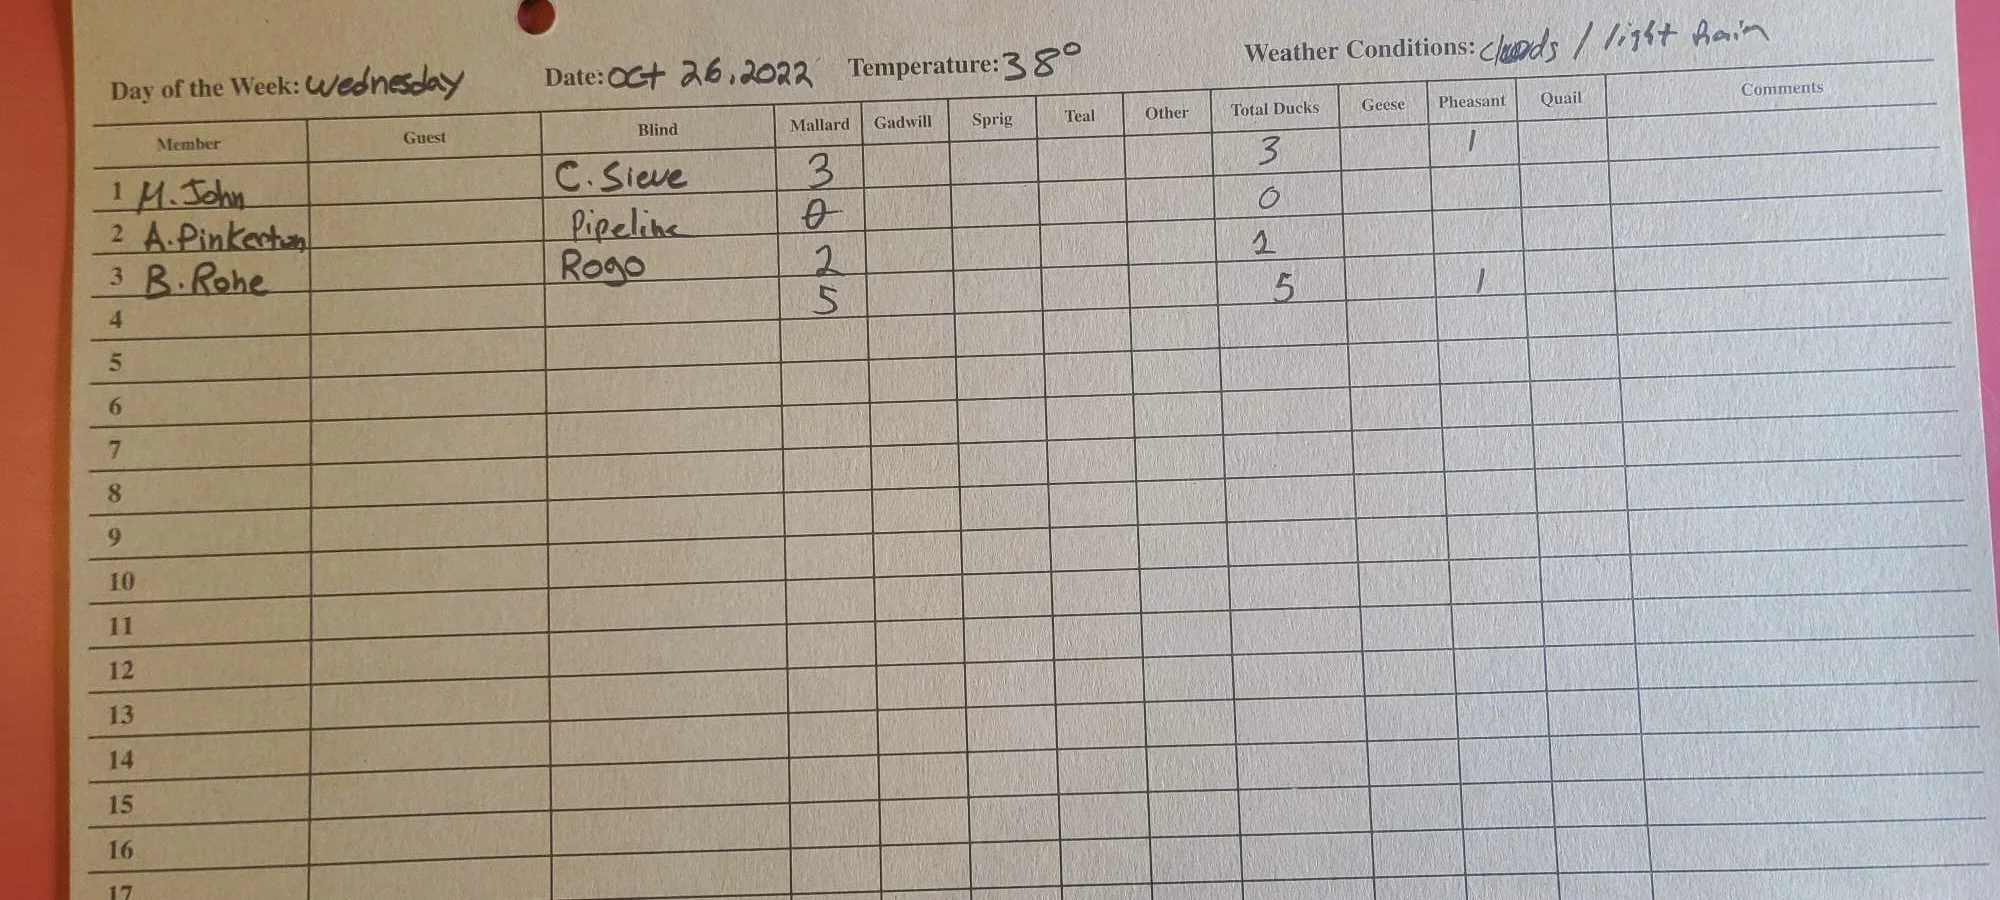 Day of the Week: Wednesday Date: Oct 26, 2022 Temperature: 38° Weather Conditions: clouds / light Rain
Member Guest Blind Mallard Gadwill Sprig Teal Other Total Ducks Geese Pheasant Quail Comments
1 M. John C. Sieve 3 3 1
2 A. Pinkerton Pipeline 0 0
3 B. Rohe Rogo 2 2
4 5 5 1
5
6
7
8
9
10
11
12
13
14
15
16
17